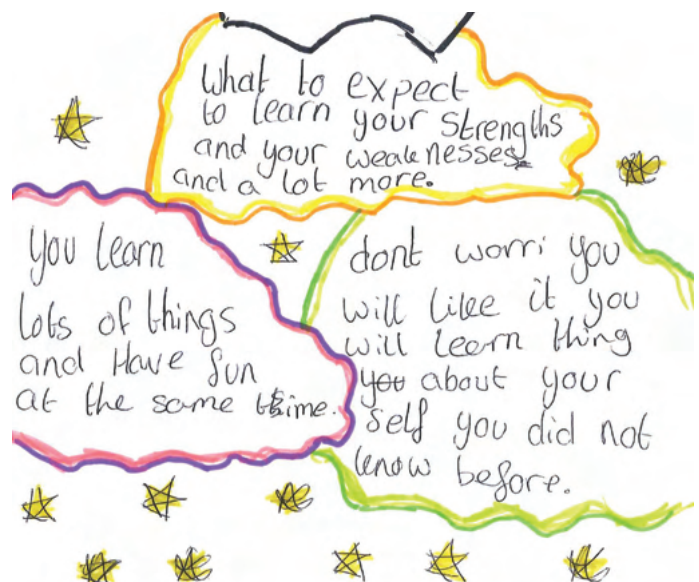 What to expect
to learn your strengths
and your weaknesses
and a lot more.
you learn
lots of things
and Have fun
at the same time.
dont worri you
will like it you
will learn thing
you about your
self you did not
know before.